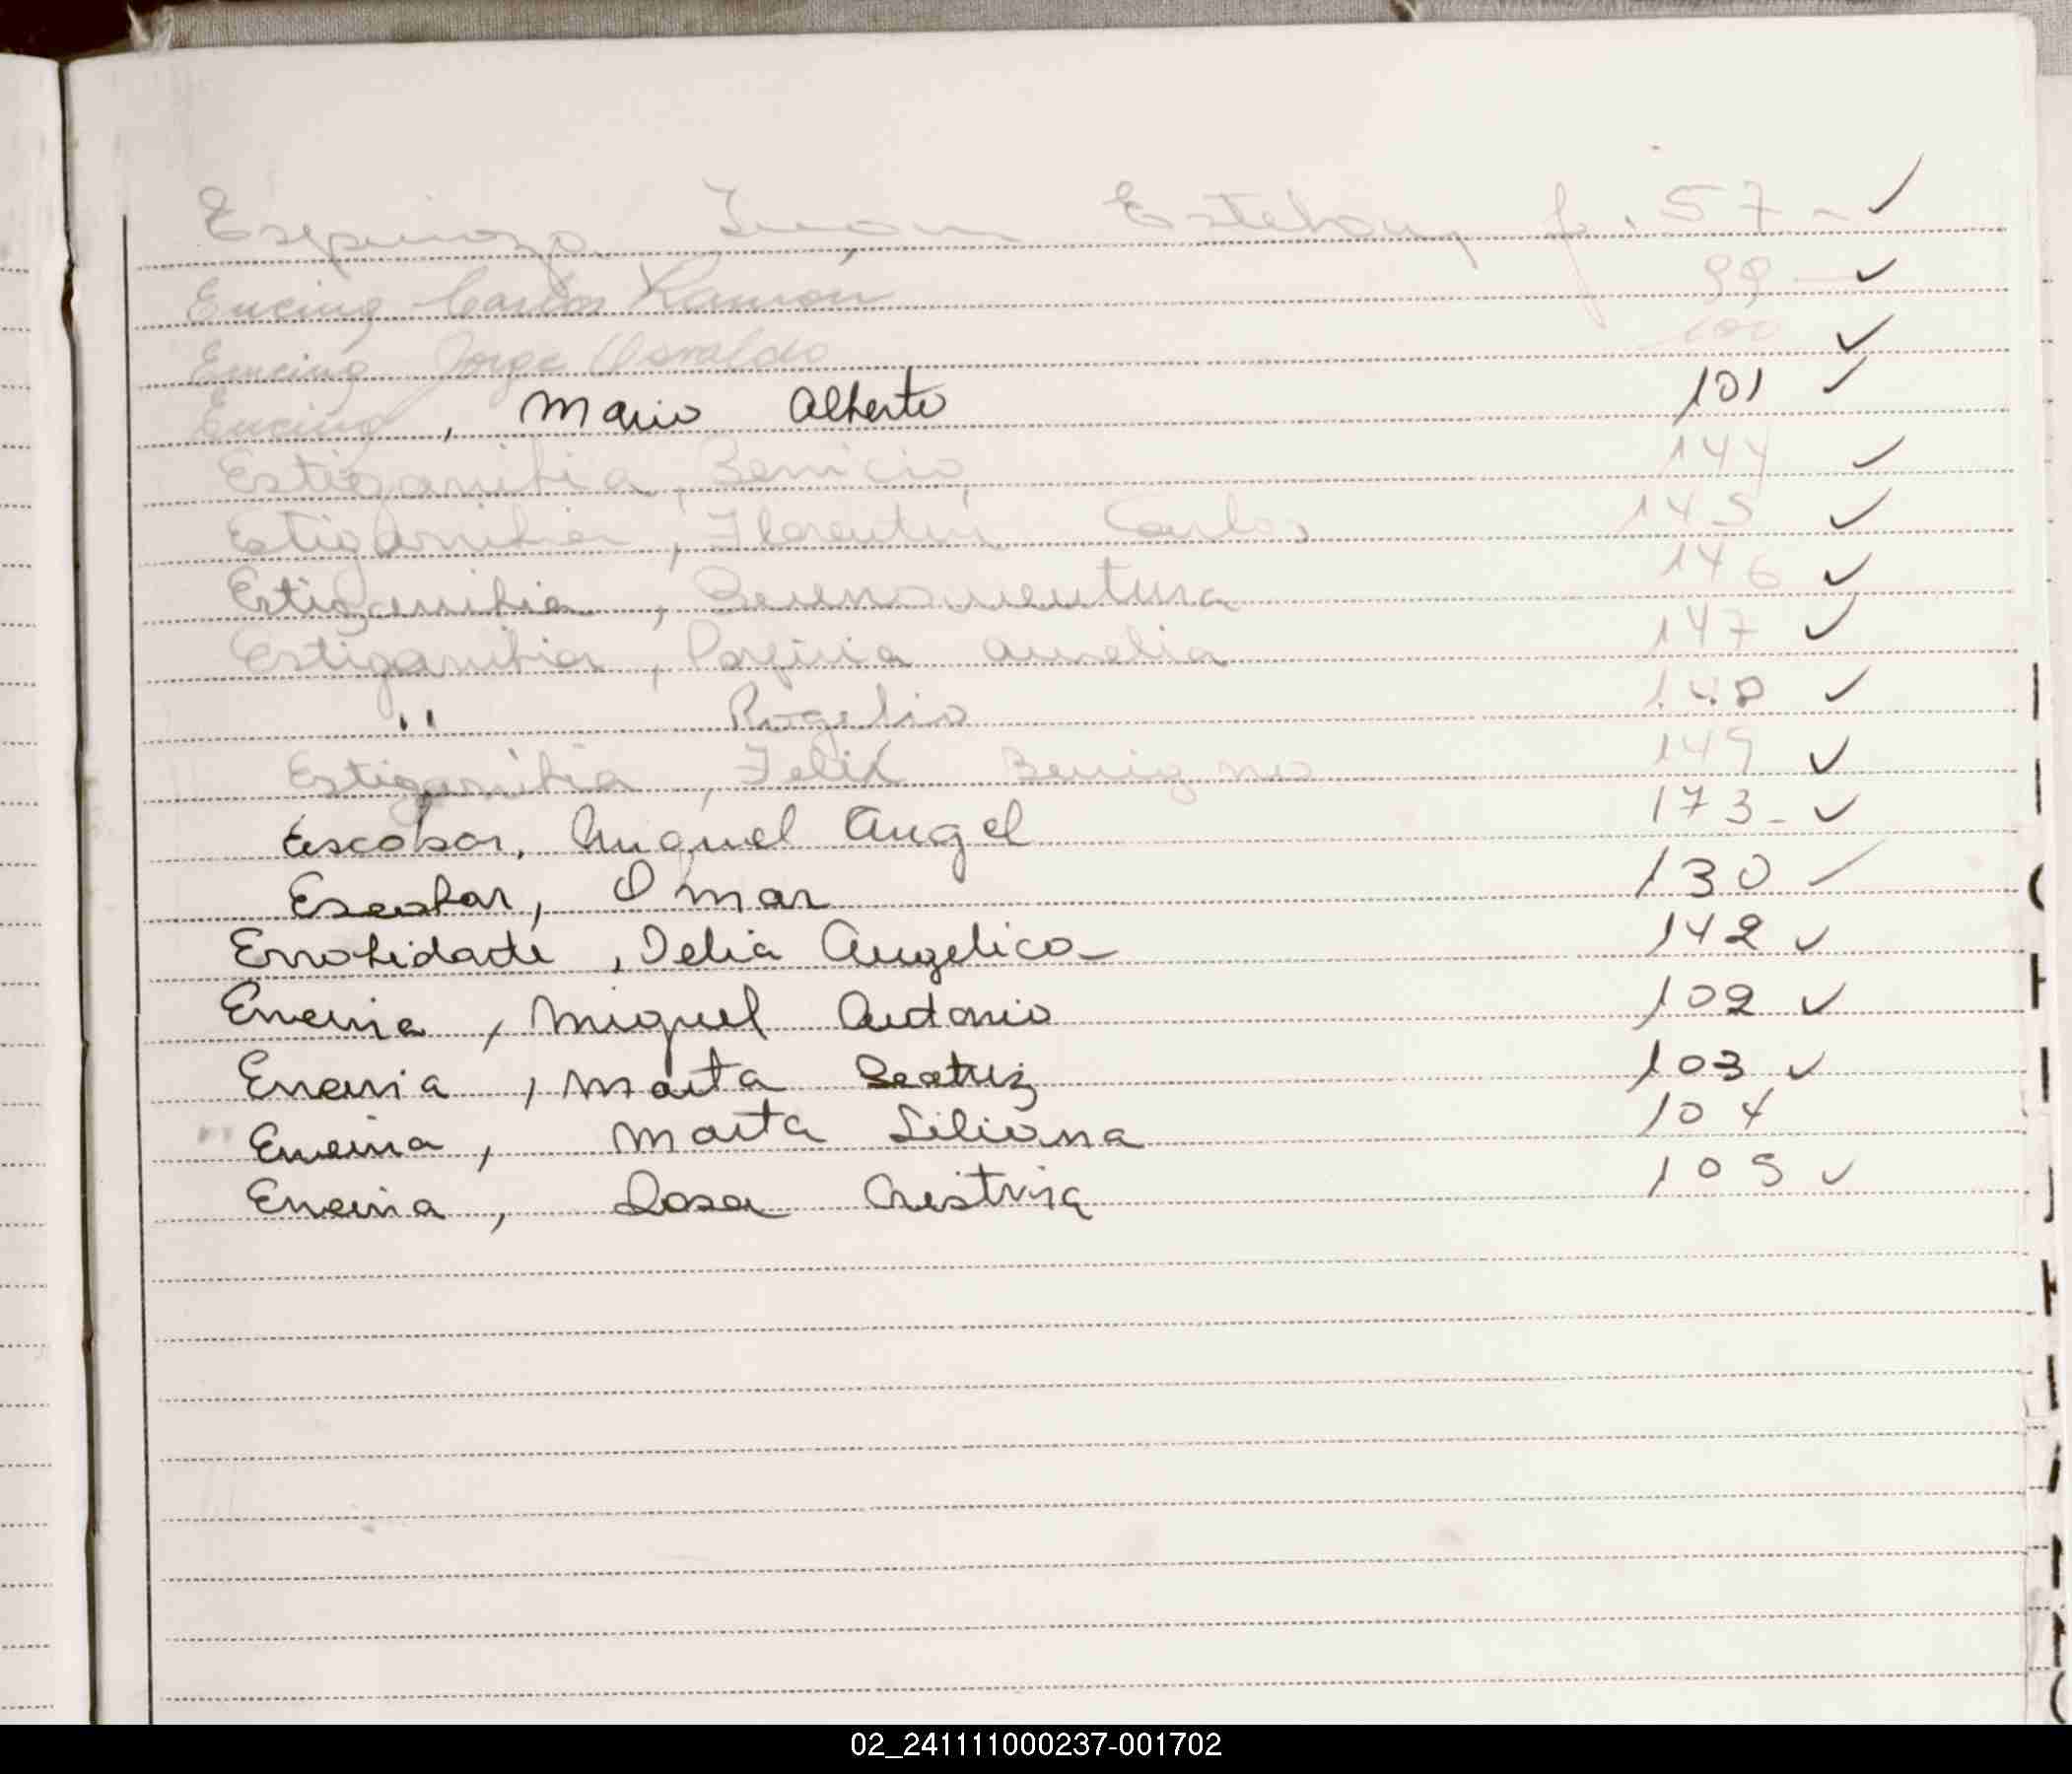 Espinoza Juan Esteban f. 57 - ✓
Encina Carlos Ramon 99 - ✓
Encina Jorge Osvaldo 100 ✓
Encina, Mario Alberto 101 ✓
Estigarribia, Benicio 144 ✓
Estigarribia, Florentin Carlos 145 ✓
Estigarribia, Buenaventura 146 ✓
Estigarribia, Porfiria Aurelia 147 ✓
" Rogelio 148 ✓
Estigarribia, Felix Benigno 149 ✓
Escobar, Miguel Angel 173 - ✓
Escobar, Omar 130 ✓
Delia Angelica 142 ✓
Encina, Miguel Antonio 102 ✓
Encina, Marta Beatriz 103 ✓
Encina, Marta Liliana 104
Encina, Rosa Cristina 105 ✓
02_241111000237-001702